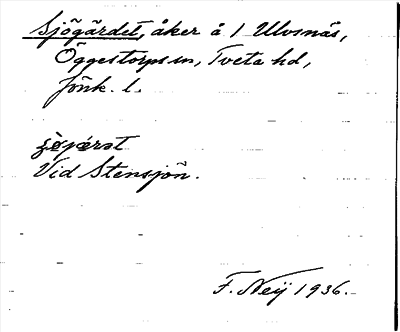 Sjögärdet, åker å 1 Ulvsnäs,
Öggestorps sn, Tveta hd,
Jönk. l.
Vid Stensjön.
F. Neij 1936.